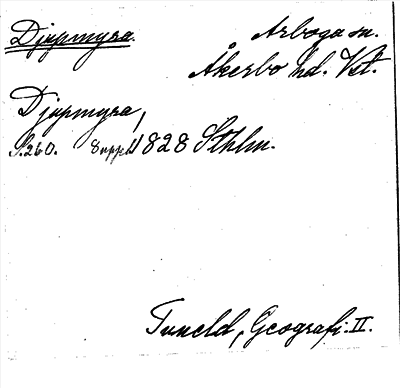 Djupmyra. Arboga sn.
Åkerbo hd. Vst.
Djupmyra,
S. 260. 8 uppl. 1828 Sthlm.
Tuneld, Geografi. II.